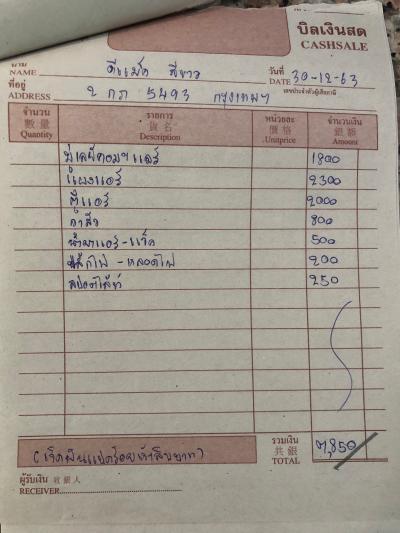 บิลเงินสด
CASHSALE
นาม
NAME ดีแม็ค สีขาว
วันที่
DATE 30-12-63
ที่อยู่
ADDRESS 2 กภ 5493 กรุงเทพฯ
เลขประจำตัวผู้เสียภาษี
จำนวน รายการ หน่วยละ จำนวนเงิน
數量 貨名 價格 銀額
Quantity Description Unitprice Amount
1800
แผงแอร์ 2300
ตู้แอร์ 2000
800
น้ำยาแอร์-แว็ค 500
-หลอดไฟ 200
250
(เจ็ดพันแปดร้อยห้าสิบบาท)
รวมเงิน
共銀
TOTAL 7,850
ผู้รับเงิน 收銀人
RECEIVER